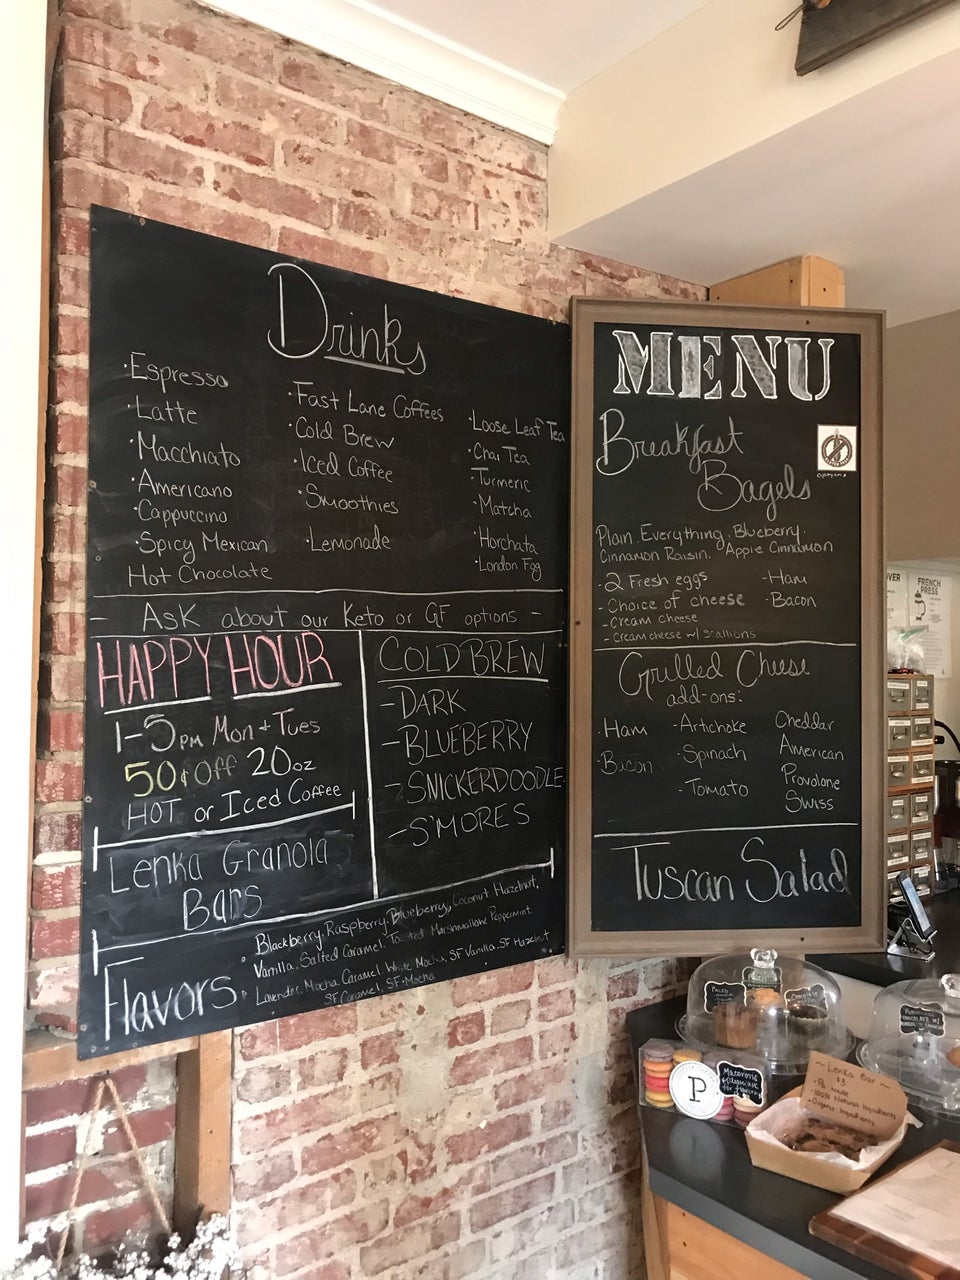 Drinks
·Espresso
·Latte
·Macchiato
·Americano
·Cappuccino
·Spicy Mexican
Hot Chocolate
·Fast Lane Coffees
·Cold Brew
·Iced Coffee
·Smoothies
·Lemonade
·Loose Leaf Tea
·Chai Tea
·Turmeric
·Matcha
·Horchata
·London Fog
- Ask about our Keto or GF options -
HAPPY HOUR
1-5pm Mon + Tues
50¢ off 20oz
HOT or Iced Coffee
Lenka Granola
Bars
COLD BREW
-DARK
-BLUEBERRY
-SNICKERDOODLE
-S'MORES
Flavors:
Blackberry, Raspberry, Blueberry, Coconut, Hazelnut,
Vanilla, Salted Caramel, Toasted Marshmallow, Peppermint,
Lavender, Mocha, Caramel, White Mocha, SF Vanilla, SF Hazelnut
SF Caramel, SF Mocha
MENU
Breakfast
Bagels
Plain, Everything, Blueberry,
Cinnamon Raisin, Apple Cinnamon
-2 Fresh eggs
-Choice of cheese
-Cream cheese
-Cream cheese w/ scallions
-Ham
·Bacon
Grilled Cheese
add-ons:
·Ham
·Bacon
·Artichoke
·Spinach
·Tomato
Cheddar
American
Provolone
Swiss
Tuscan Salad
FRENCH
PRESS
P
Macarons
~ Lenka Bar ~
$3
·Pa made
·100% Natural Ingredients
·Organic Ingredients